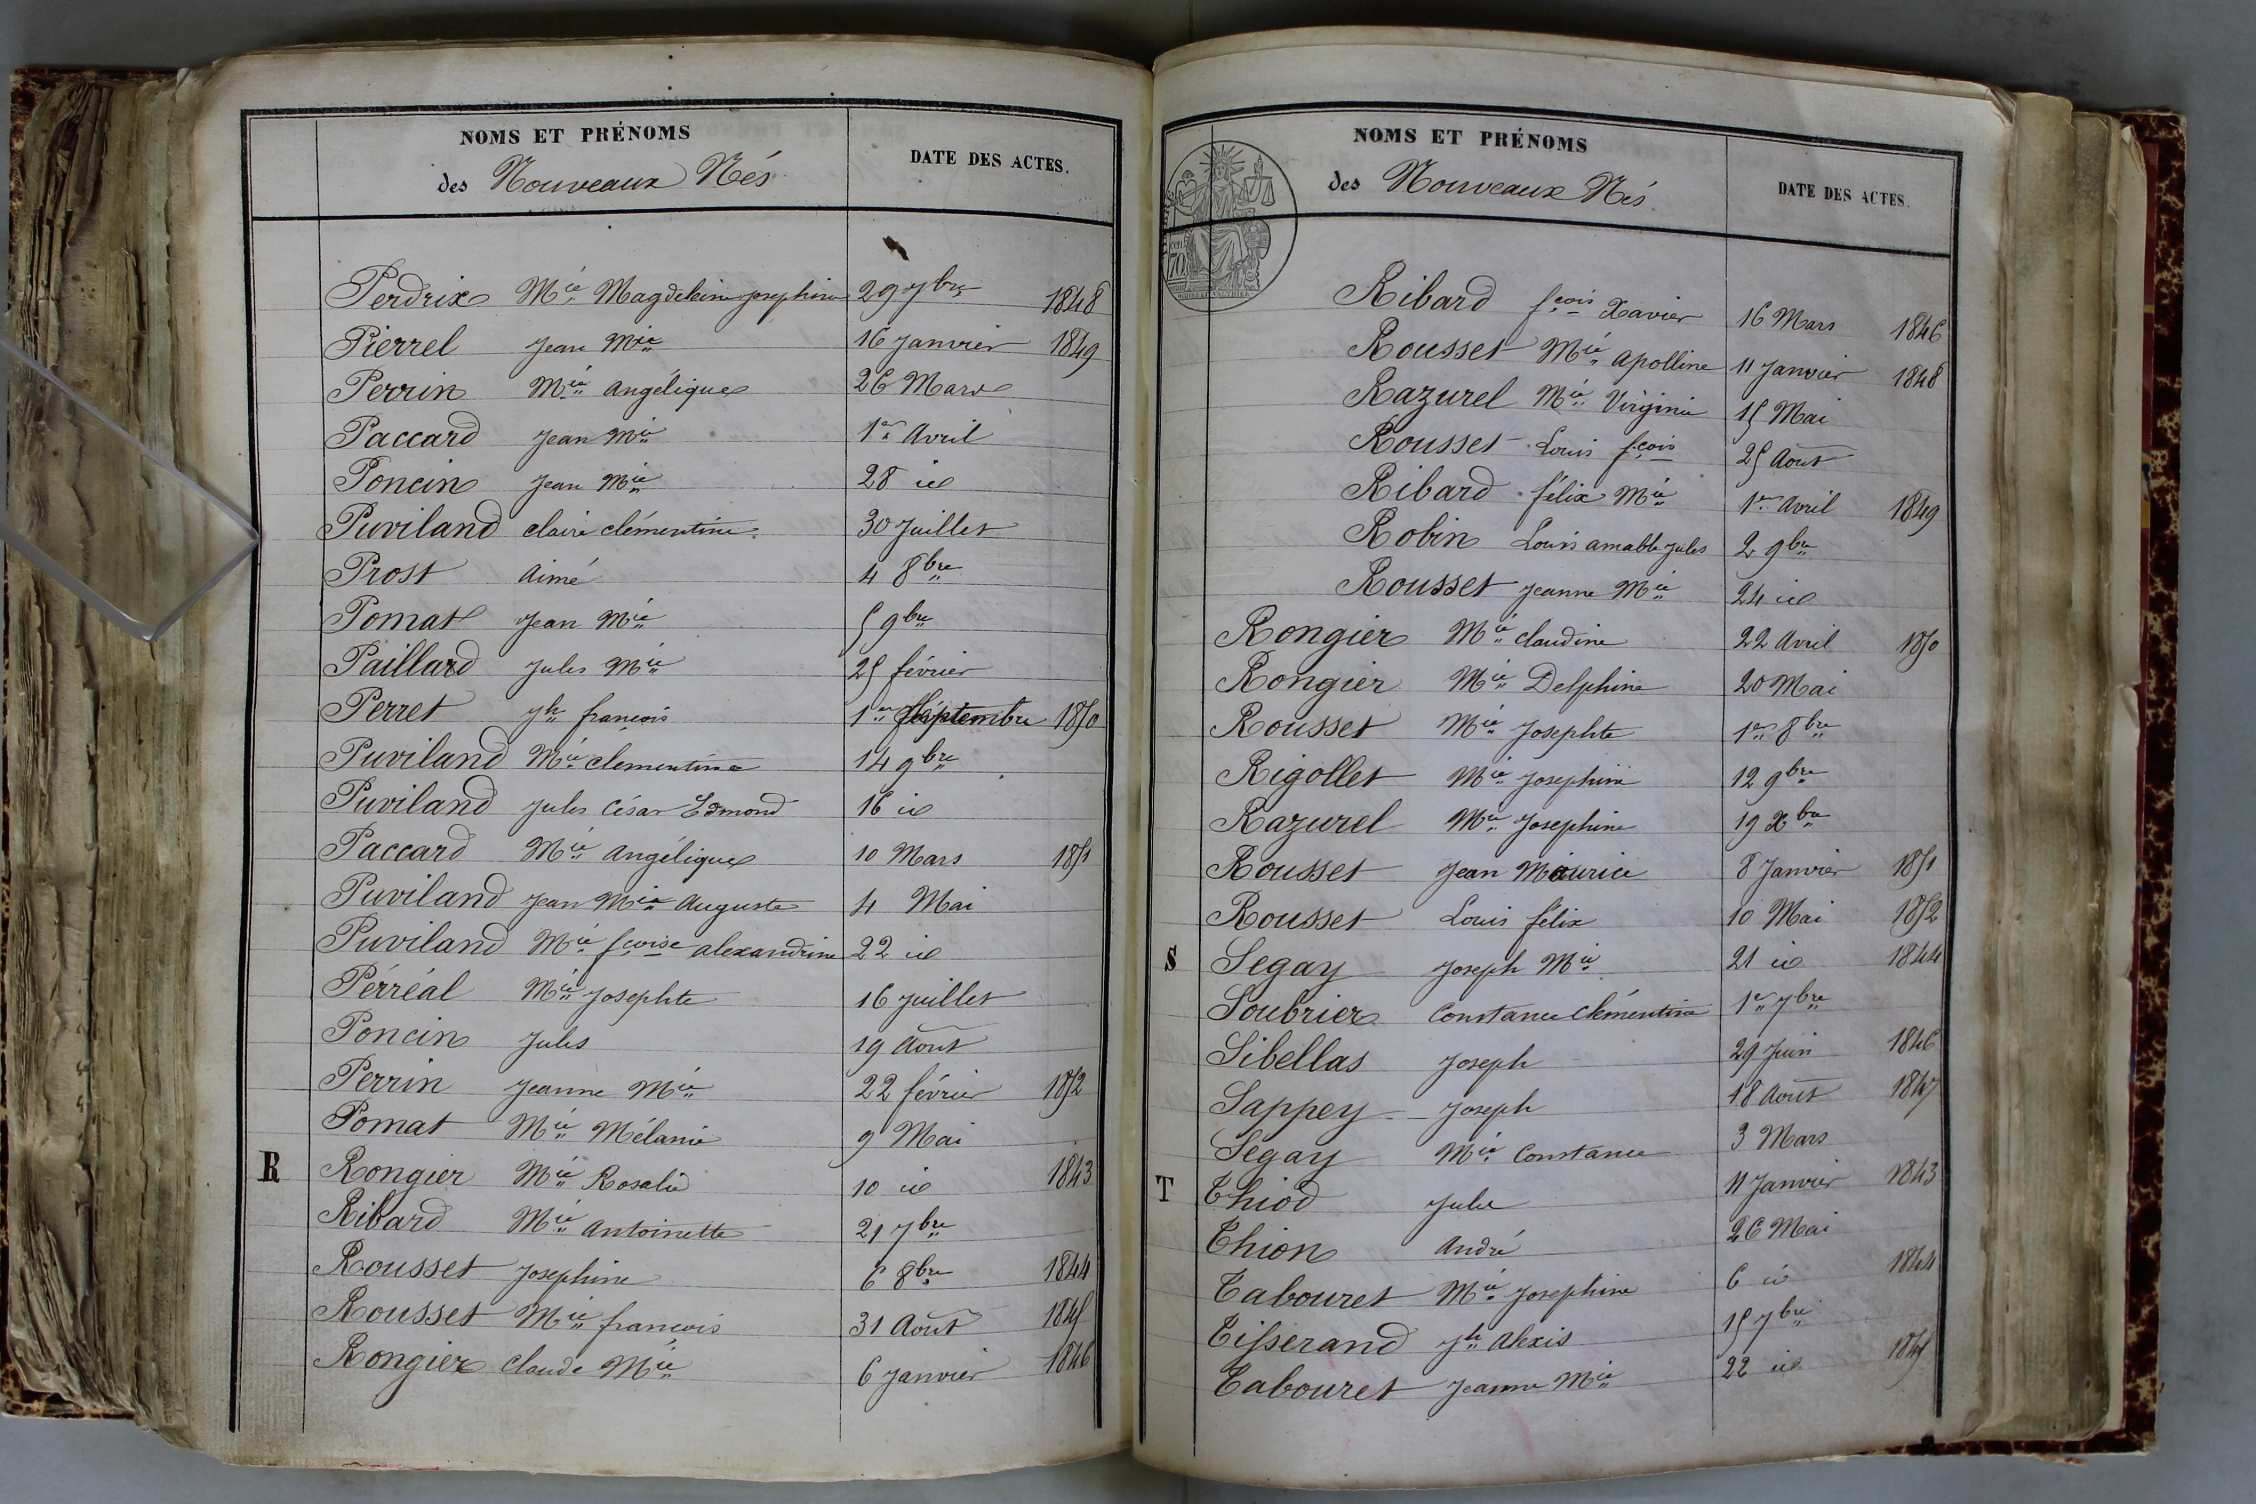 NOMS ET PRÉNOMS
des Nouveaux Nés
DATE DES ACTES.
Perdrix Mie Magdeleine Josephine 29 7bre 1848
Pierrel Jean Mie 16 Janvier 1849
Perrin Mie Angélique 26 Mars
Paccard Jean Mie 1er Avril
Poncin Jean Mie 28 id
Puviland Claire Clémentine 30 Juillet
Prost Aimé 4 8bre
Pomat Jean Mie 5 9bre
Paillard Jules Mie 25 février
Perret Jh françois 1er Septembre 1850
Puviland Mie Clementine 14 9bre
Puviland Jules César Edmond 16 id
Paccard Mie Angélique 10 Mars 1851
Puviland Jean Mie Auguste 4 Mai
Puviland Mie fçoise alexandrine 22 id
Pérréal Mie Josephte 16 Juillet
Poncin Jules 19 Août
Perrin Jeanne Mie 22 février 1852
Pomat Mie Mélanie 9 Mai
R Rongier Mie Rosalie 10 id 1843
Ribard Mie Antoinette 21 7bre
Rousset Josephine 6 8bre 1844
Rousset Mie françois 31 Août 1845
Rongier Claude Mie 6 Janvier 1846
NOMS ET PRÉNOMS
des Nouveaux Nés
DATE DES ACTES.
70
Ribard fçois Xavier 16 Mars 1846
Rousset Mie Apolline 11 Janvier 1848
Razurel Mie Virginie 15 Mai
Rousset Louis fçois 25 Août
Ribard félix Mie 1er Avril 1849
Robin Louis amable Jules 2 9bre
Rousset Jeanne Mie 24 id
Rongier Mie Claudine 22 Avril 1850
Rongier Mie Delphine 20 Mai
Rousset Mie Josephte 1er 8bre
Rigollet Mie Josephine 12 9bre
Razurel Mie Josephine 19 Xbre
Rousset Jean Maurice 8 Janvier 1851
Rousset Louis félix 10 Mai 1852
S Segay Joseph Mie 21 id 1844
Soubrier Constance Clémentine 1er 7bre
Sibellas Joseph 29 Juin 1846
Sappey Joseph 18 Août 1847
Segay Mie Constance 3 Mars
T Thiod Julie 11 Janvier 1843
Thion André 26 Mai
Tabouret Mie Josephine 6 id 1844
Tisserand Jh Alexis 15 7bre
Tabouret Jeanne Mie 22 id 1845